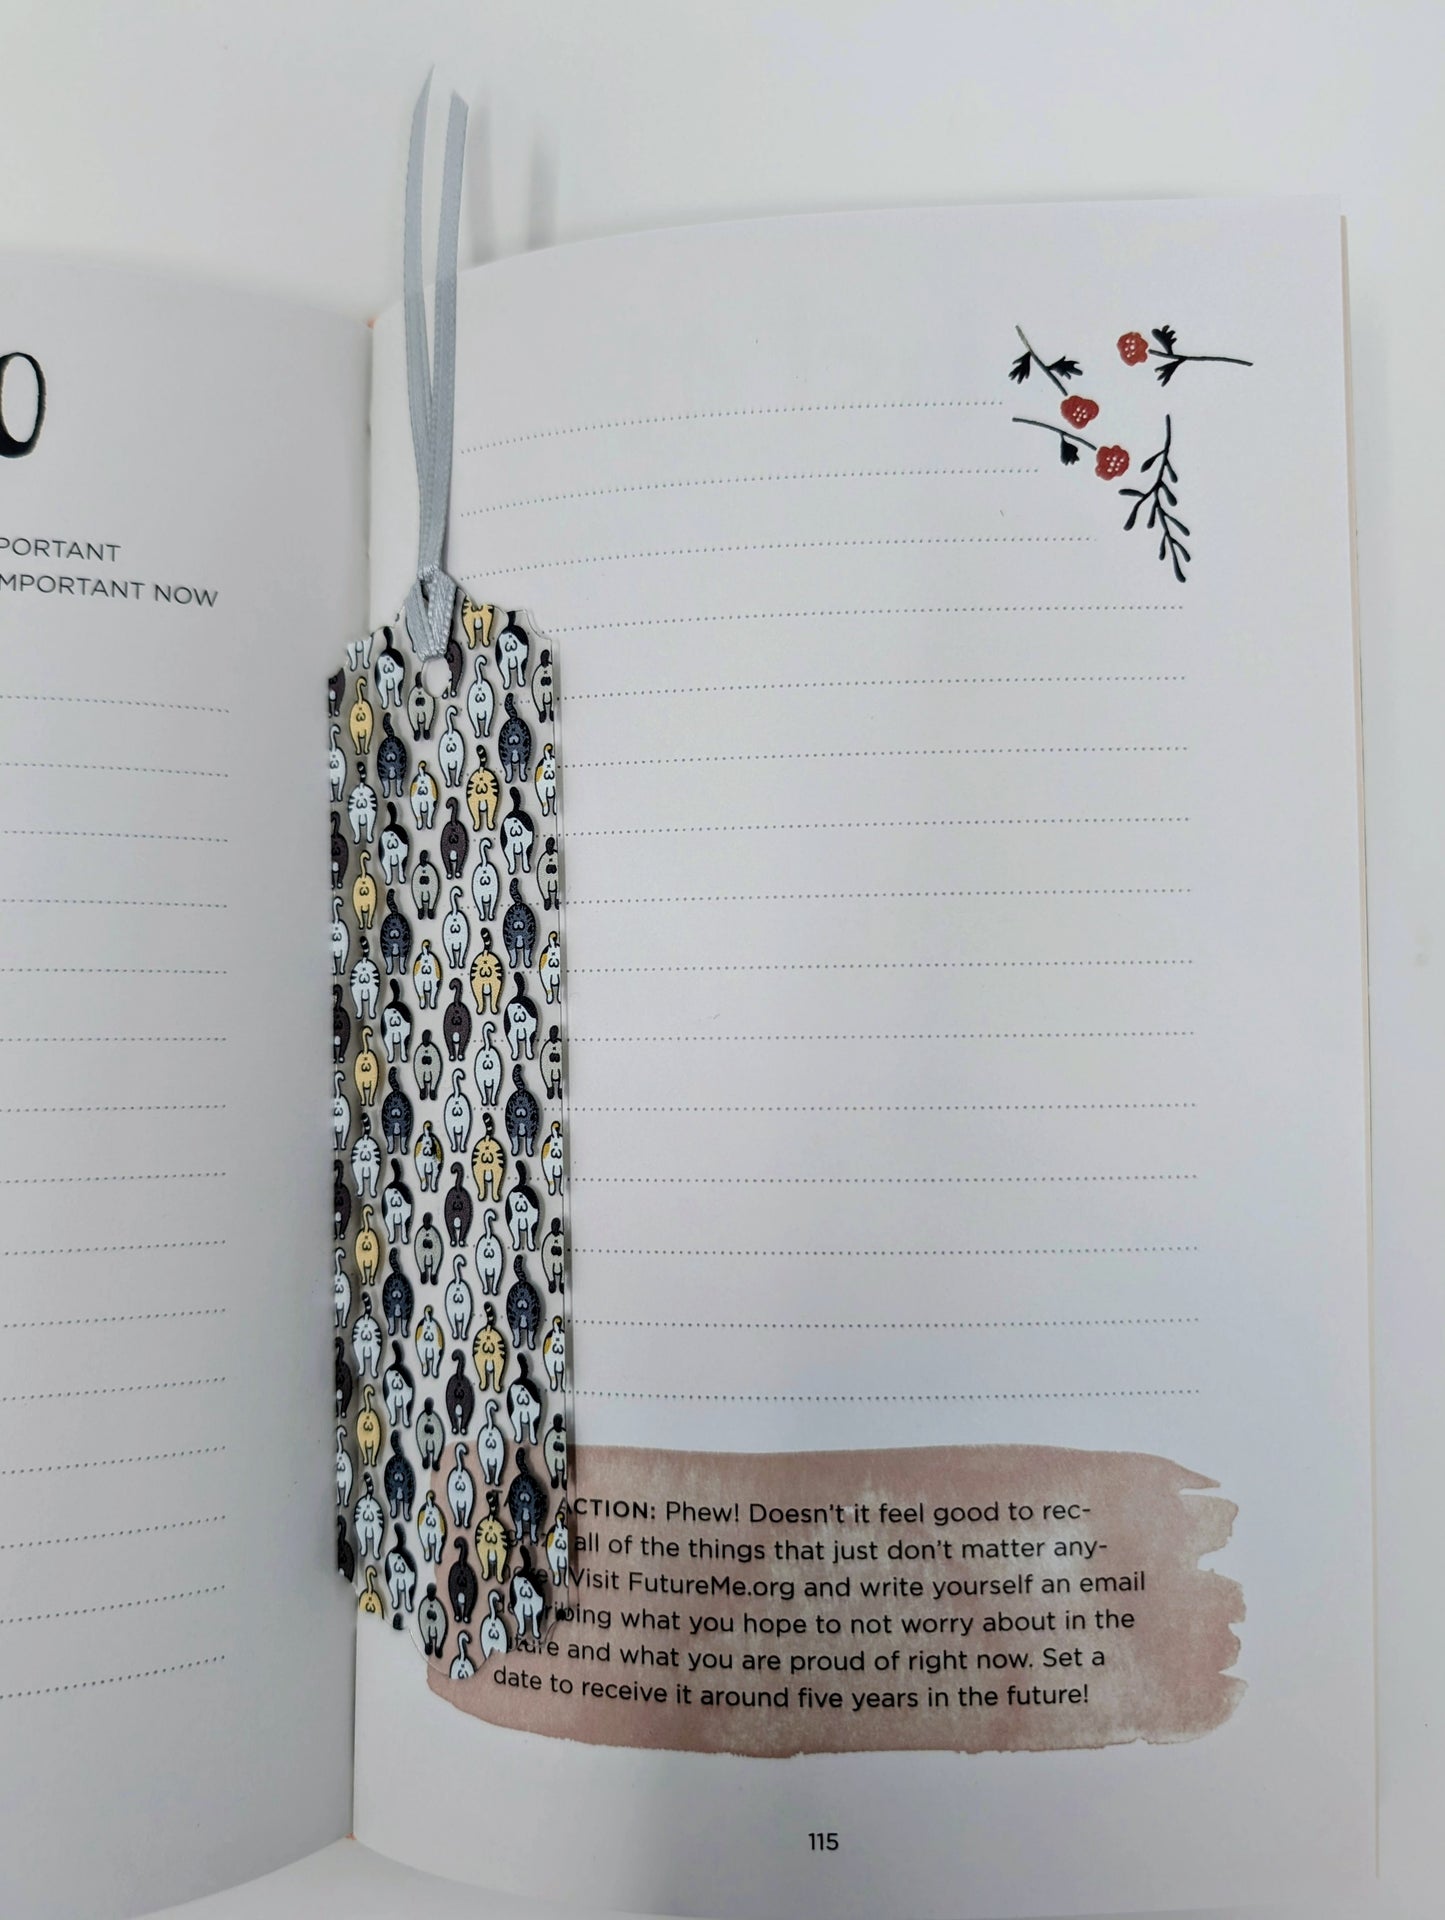 0
PORTANT
MPORTANT NOW
ACTION: Phew! Doesn't it feel good to rec-
all of the things that just don't matter any-
Visit FutureMe.org and write yourself an email
what you hope to not worry about in the
and what you are proud of right now. Set a
date to receive it around five years in the future!
115